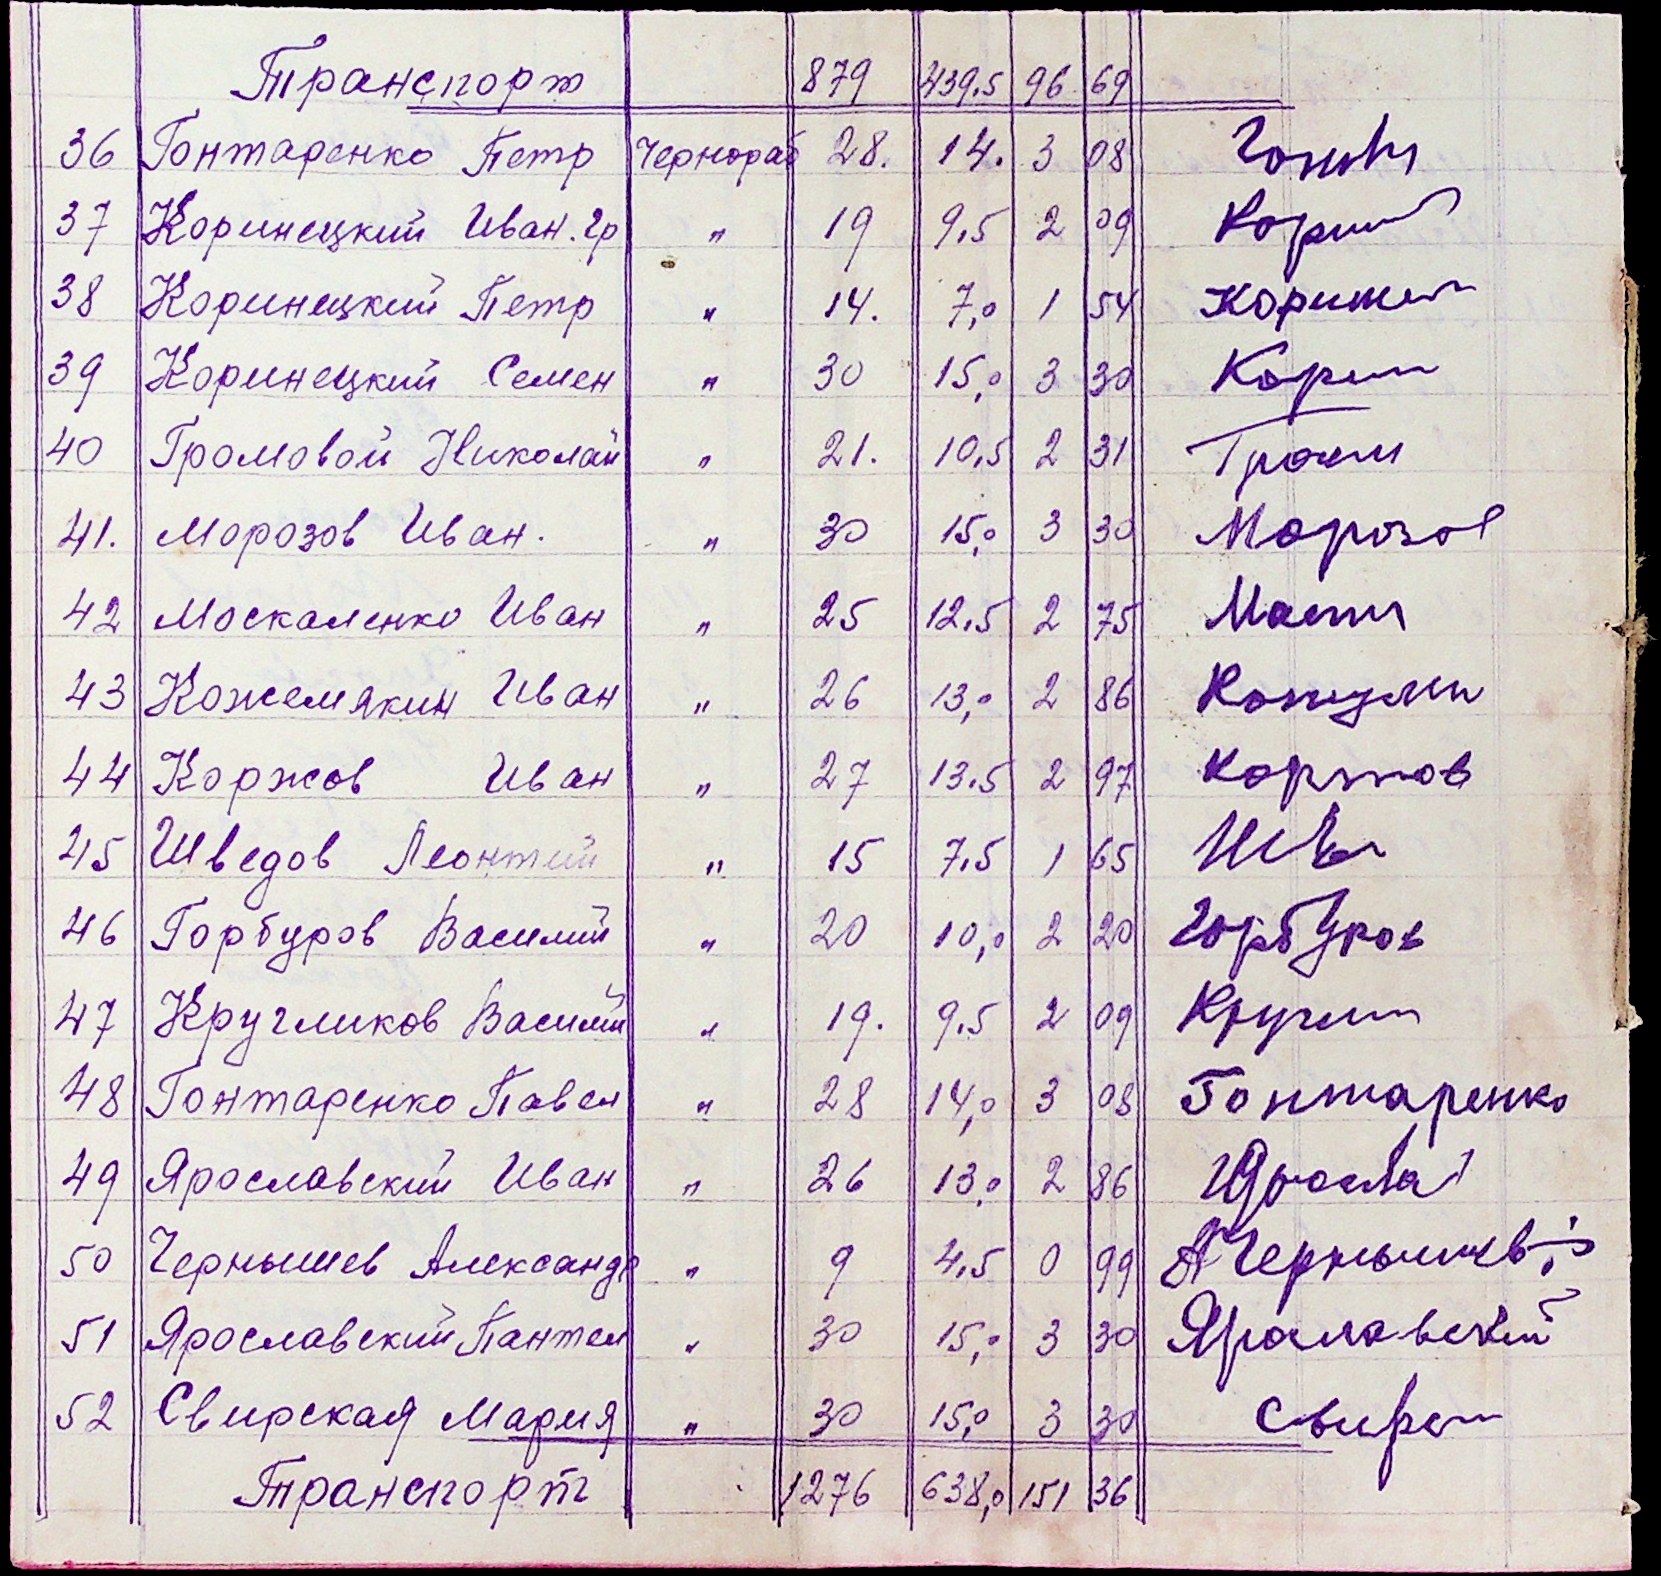 Транспорт 879 439,5 96 69
36 Гонтаренко Петр Чернораб 28. 14. 3 08
37 Коринецкий Иван. Гр " 19 9,5 2 09
38 Коринецкий Петр " 14. 7,0 1 54
39 Коринецкий Семен " 30 15,0 3 30 Корин
40 Громовой Николай " 21. 10,5 2 31 Гром
41. Морозов Иван. " 30 15,0 3 30 Морозов
42 Москаленко Иван " 25 12,5 2 75
43 Кожемякин Иван " 26 13,0 2 86
44 Коржов Иван " 27 13,5 2 97 Коржов
45 Шведов Леонтий " 15 7,5 1 65
46 Горбуров Василий " 20 10,0 2 20 Горбуров
47 Кругликов Василий " 19. 9,5 2 09 Кругли
48 Гонтаренко Павел " 28 14,0 3 08 Гонтаренко
49 Ярославский Иван " 26 13,0 2 86
50 Чернышев Александр " 9 4,5 0 99 АЧернышев
51 Ярославский Пантел " 30 15,0 3 30 Яраславский
52 Свирская Мария " 30 15,0 3 30 Свирс
Транспорт 1276 638,0 151 36